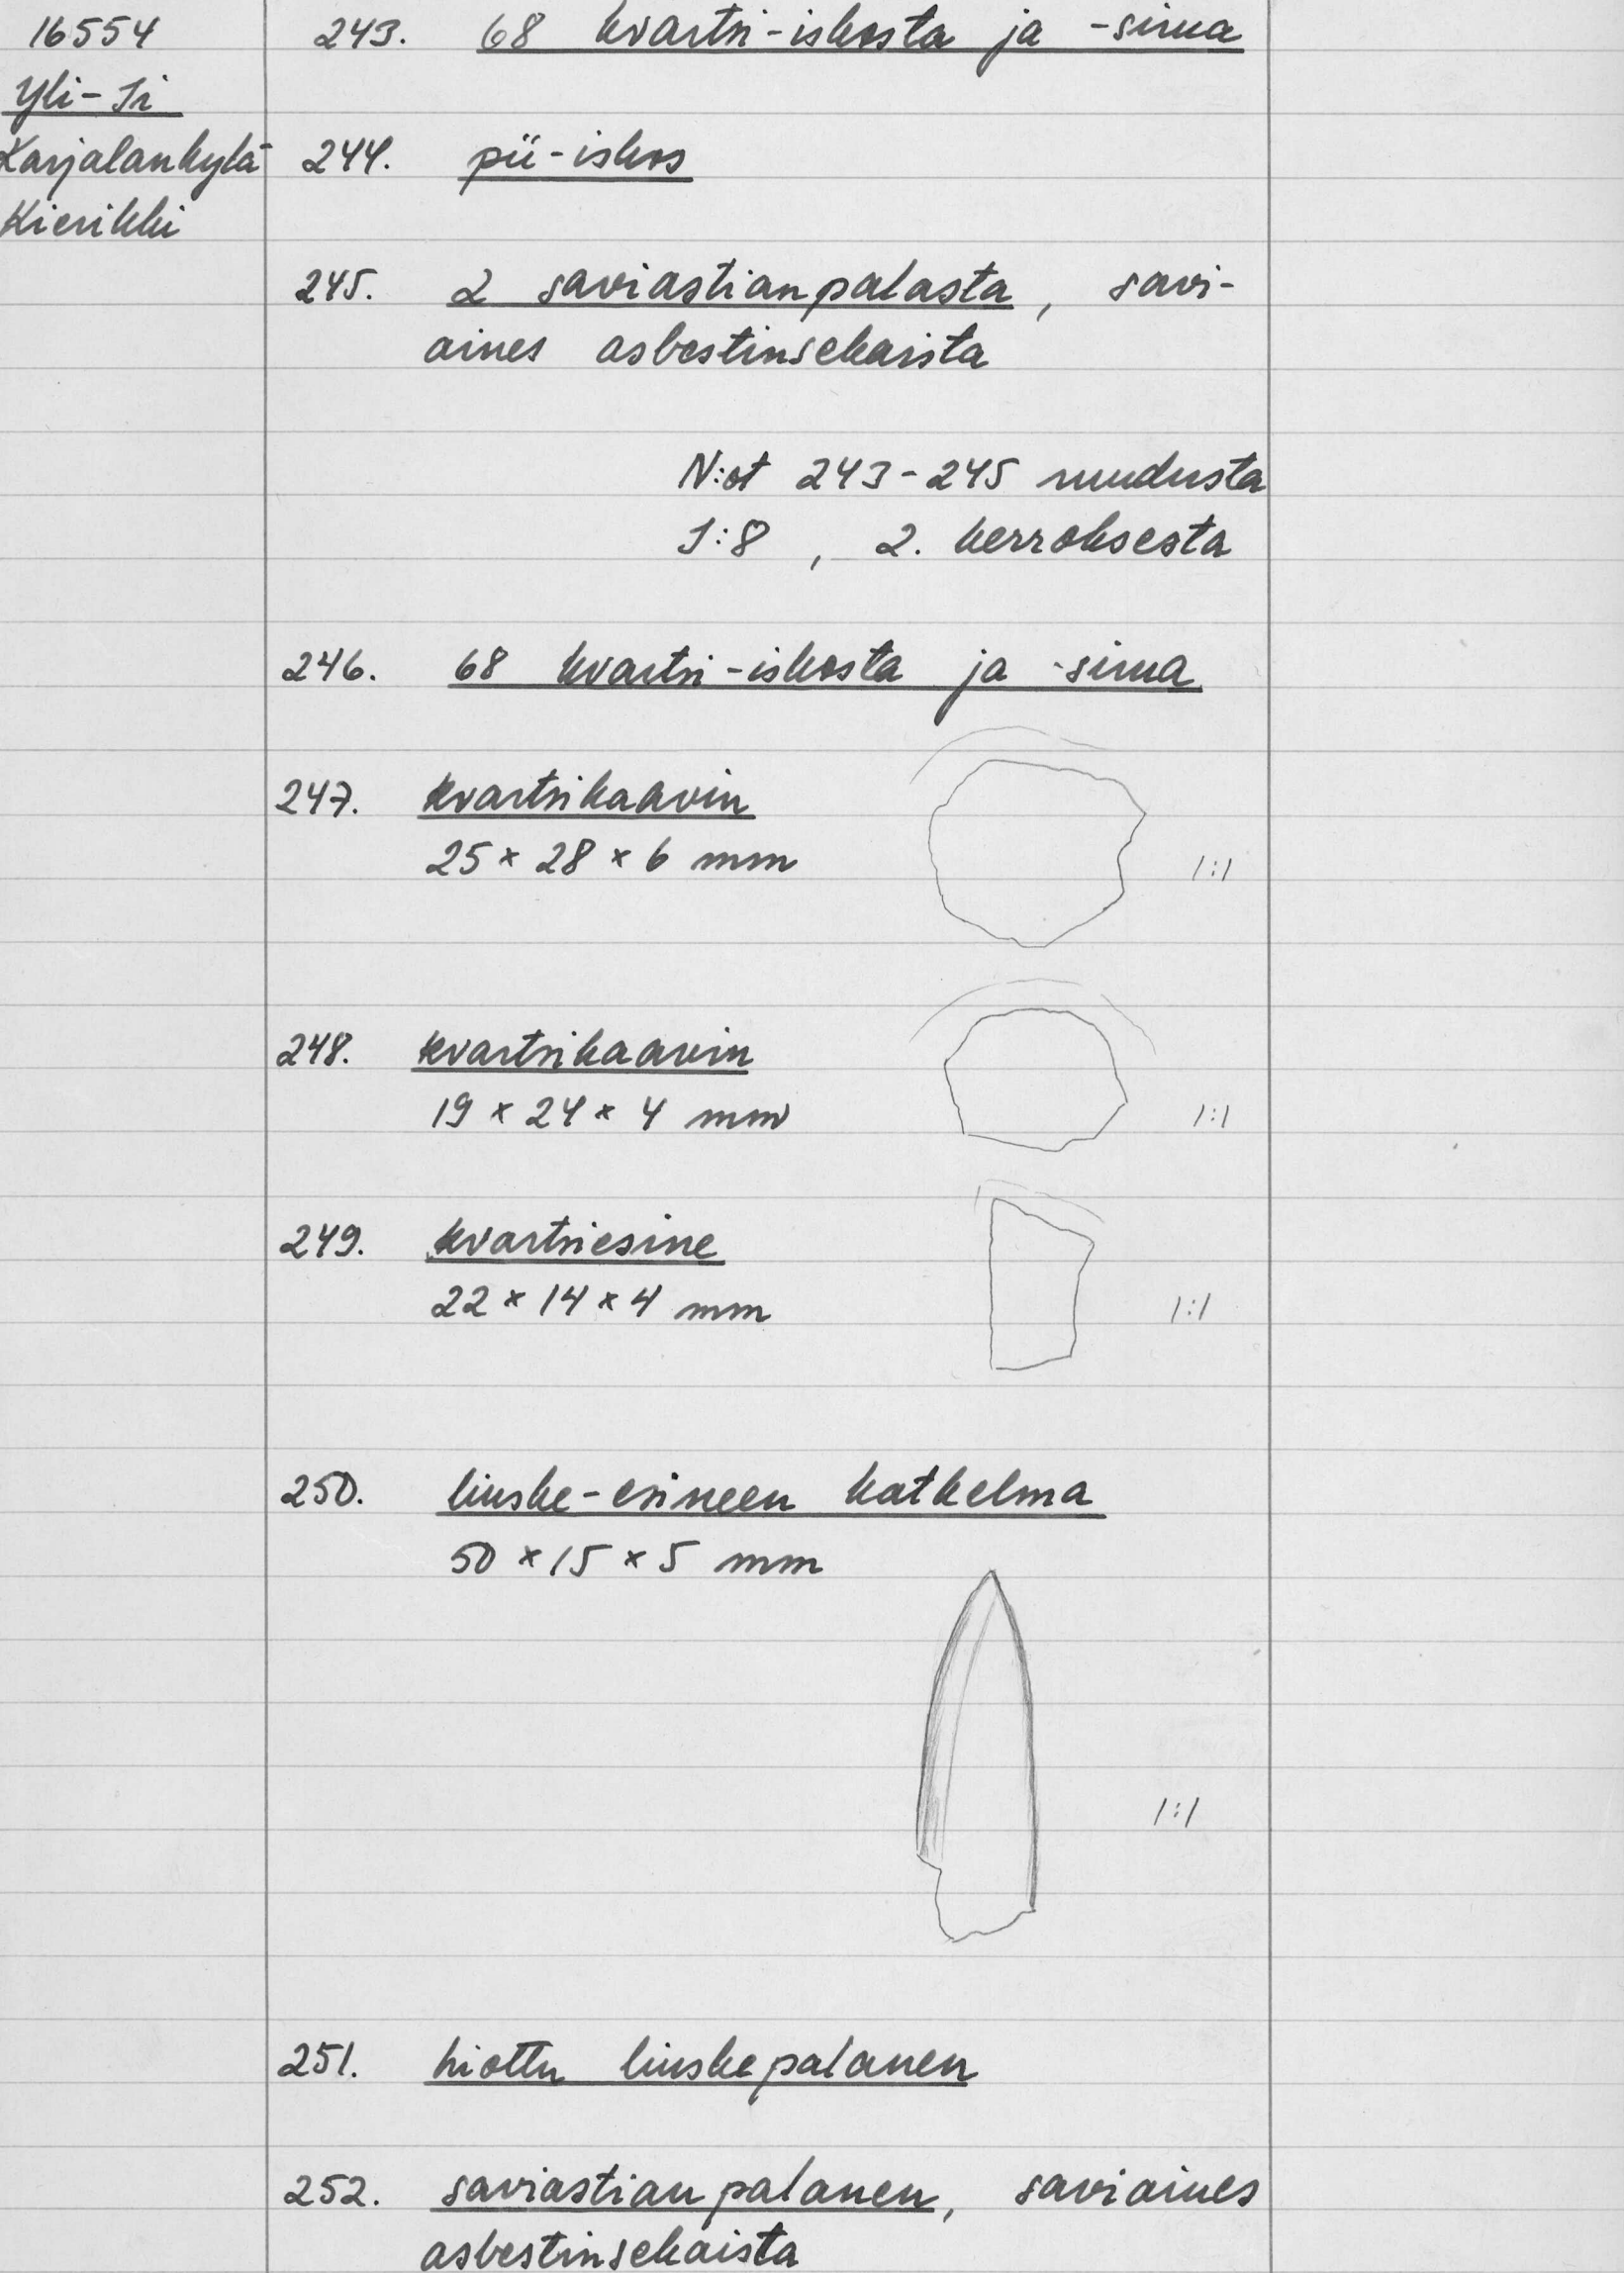 16554
Yli-Ii
Karjalankylä
Kierikki
243. 68 kvartsi-iskosta ja -sirua
244. pii-iskos
245. 2 saviastianpalasta, savi-
aines asbestinsekaista
N:ot 243-245 ruudusta
I:8, 2. kerroksesta
246. 68 kvartsi-iskosta ja -sirua
247. kvartsikaavin
25 x 28 x 6 mm
1:1
248. kvartsikaavin
19 x 24 x 4 mm
1:1
249. kvartsiesine
22 x 14 x 4 mm
1:1
250. liuske-esineen katkelma
50 x 15 x 5 mm
1:1
251. hiottu liuskepalanen
252. saviastianpalanen, saviaines
asbestinsekaista